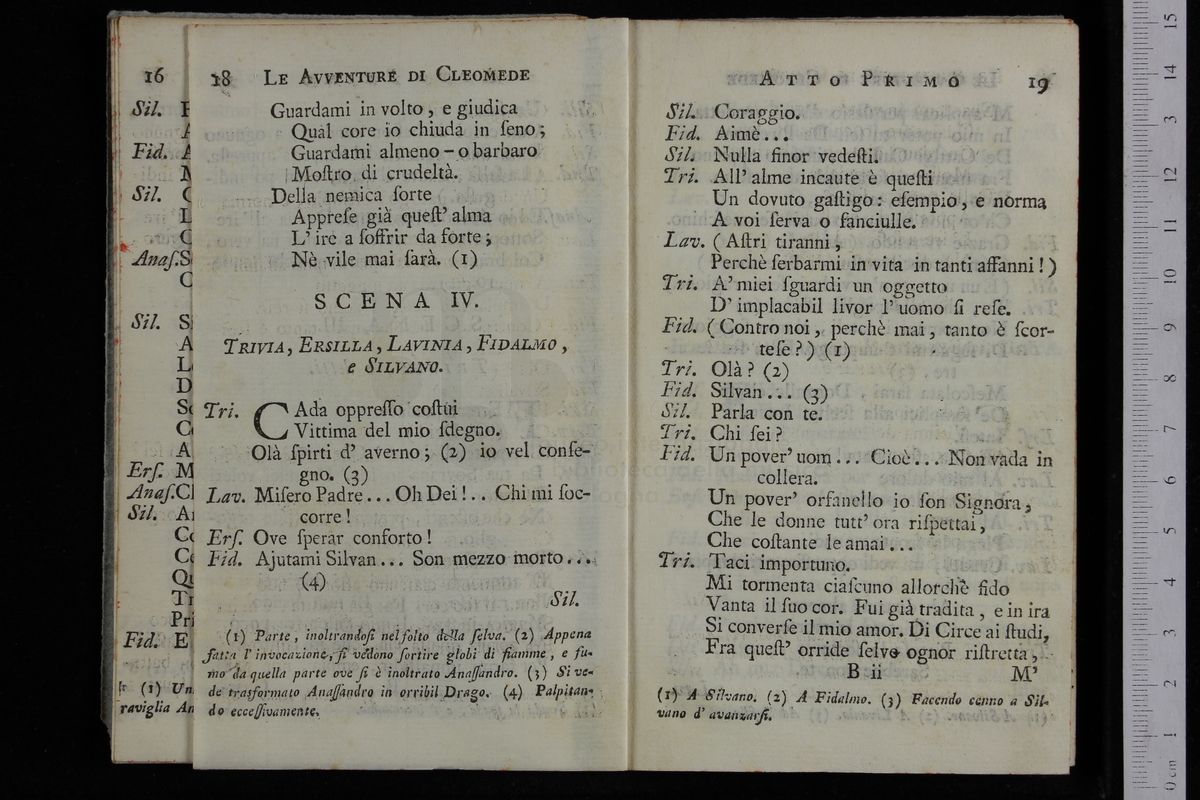 16
Sil.
Fid.
Sil.
Anaſ.S
Sil.
Erſ. M
Anaſ.
Sil.
Fid. E
(1) Un
raviglia An
18 LE AVVENTURE DI CLEOMEDE
Guardami in volto, e giudica
Qual core io chiuda in ſeno;
Guardami almeno – o barbaro
Moſtro di crudeltà.
Della nemica ſorte
Appreſe già queſt' alma
L' ire a ſoffrir da forte;
Nè vile mai ſarà. (1)
SCENA IV.
TRIVIA, ERSILLA, LAVINIA, FIDALMO,
e SILVANO.
Tri. CAda oppreſſo coſtui
Vittima del mio ſdegno.
Olà ſpirti d' averno; (2) io vel conſe-
gno. (3)
Lav. Miſero Padre... Oh Dei!.. Chi mi ſoc-
corre!
Erſ. Ove ſperar conforto!
Fid. Ajutami Silvan... Son mezzo morto...
(4)
Sil.
(1) Parte, inoltrandoſi nel folto della ſelva. (2) Appena
fatta l' invocazione, ſi vedono ſortire globi di fiamme, e fu-
mo da quella parte ove ſi è inoltrato Anaſſandro. (3) Si ve-
de trasformato Anaſſandro in orribil Drago. (4) Palpitan-
do ecceſſivamente.
ATTO PRIMO 19
Sil. Coraggio.
Fid. Aimè...
Sil. Nulla finor vedeſti.
Tri. All' alme incaute è queſti
Un dovuto gaſtigo: eſempio, e norma
A voi ſerva o fanciulle.
Lav. (Aſtri tiranni,
Perchè ſerbarmi in vita in tanti affanni!)
Tri. A' miei ſguardi un oggetto
D' implacabil livor l' uomo ſi reſe.
Fid. (Contro noi, perchè mai, tanto è ſcor-
teſe?) (1)
Tri. Olà? (2)
Fid. Silvan... (3)
Sil. Parla con te.
Tri. Chi ſei?
Fid. Un pover' uom... Cioè... Non vada in
collera.
Un pover' orfanello io ſon Signora,
Che le donne tutt' ora riſpettai,
Che coſtante le amai...
Tri. Taci importuno.
Mi tormenta ciaſcuno allorchè fido
Vanta il ſuo cor. Fui già tradita, e in ira
Si converſe il mio amor. Di Circe ai ſtudj,
Fra queſt' orride ſelve ognor riſtretta,
B ii M'
(1) A Silvano. (2) A Fidalmo. (3) Facendo cenno a Sil-
vano d' avanzarſi.